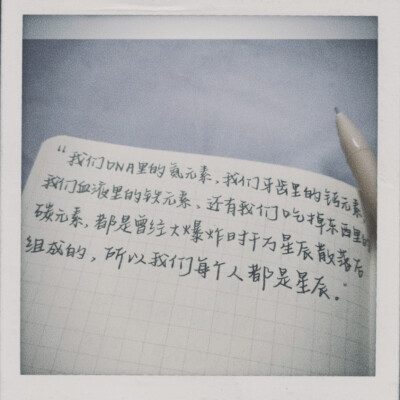 “我们DNA里的氮元素,我们牙齿里的钙元素,
我们血液里的铁元素、还有我们吃掉东西里的
碳元素,都是曾经大爆炸时千万星辰散落后
组成的,所以我们每个人都是星辰。”